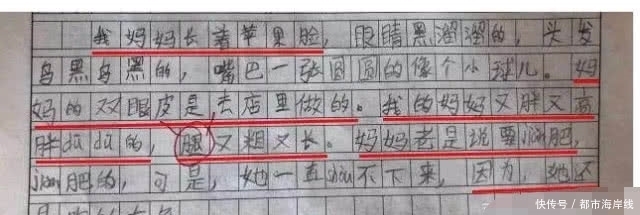 我妈妈长着苹果脸，眼睛黑溜溜的，头发
乌黑乌黑的，嘴巴一张圆圆的像个小球儿。妈
妈的双眼皮是去店里做的。我的妈妈又胖又高
胖dū dū的，腿又粗又长。妈妈老是说要jiǎn肥，
jiǎn肥的，可是，她一直shòu不下来，因为，她还
快资讯 / 都市海岸线